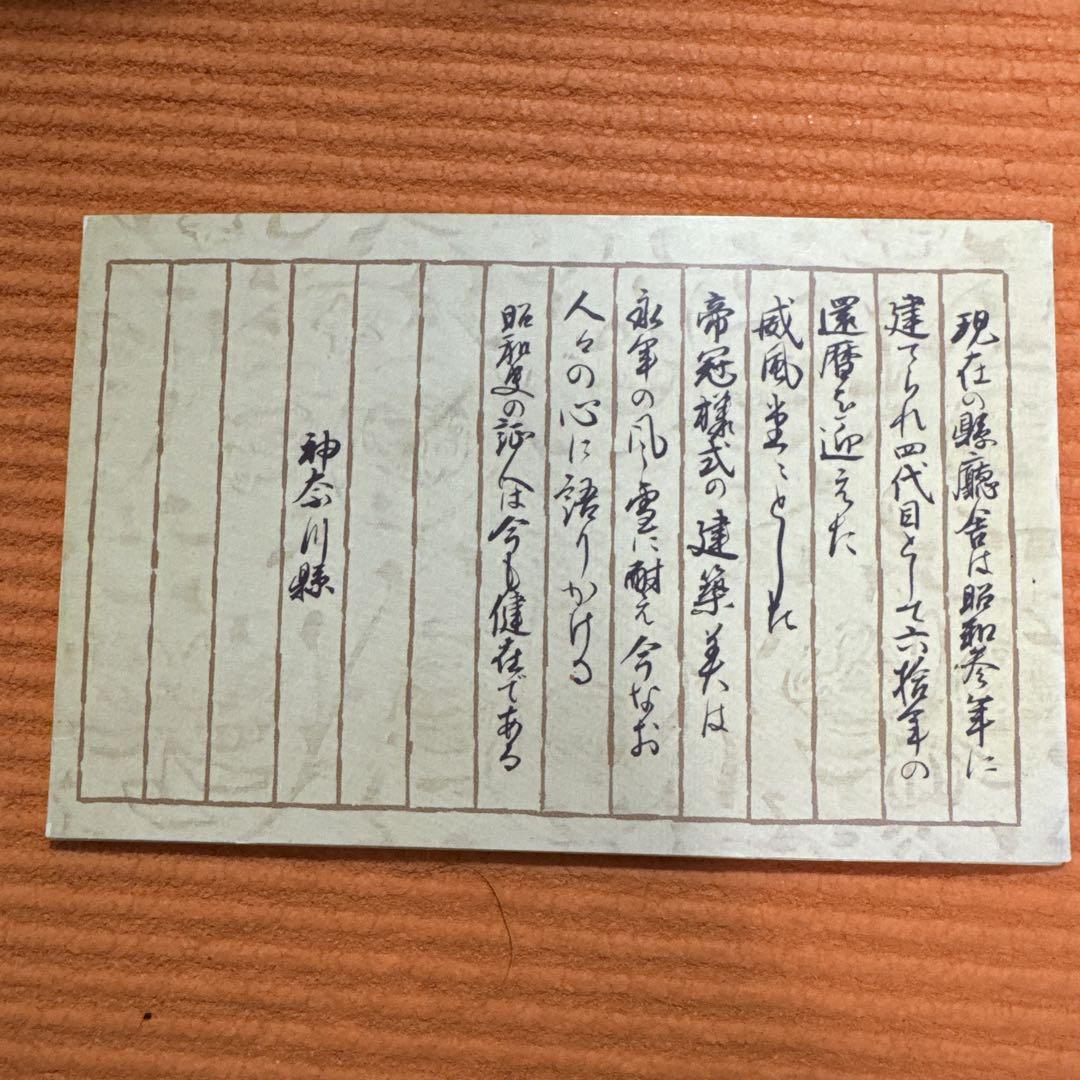 現在の縣廳舎は昭和参年に
建てられ四代目として六拾年の
還暦を迎えた
威風堂々とした
帝冠様式の建築美は
永年の風雪に耐え今なお
人々の心に語りかける
昭和史の証人は今も健在である
神奈川縣